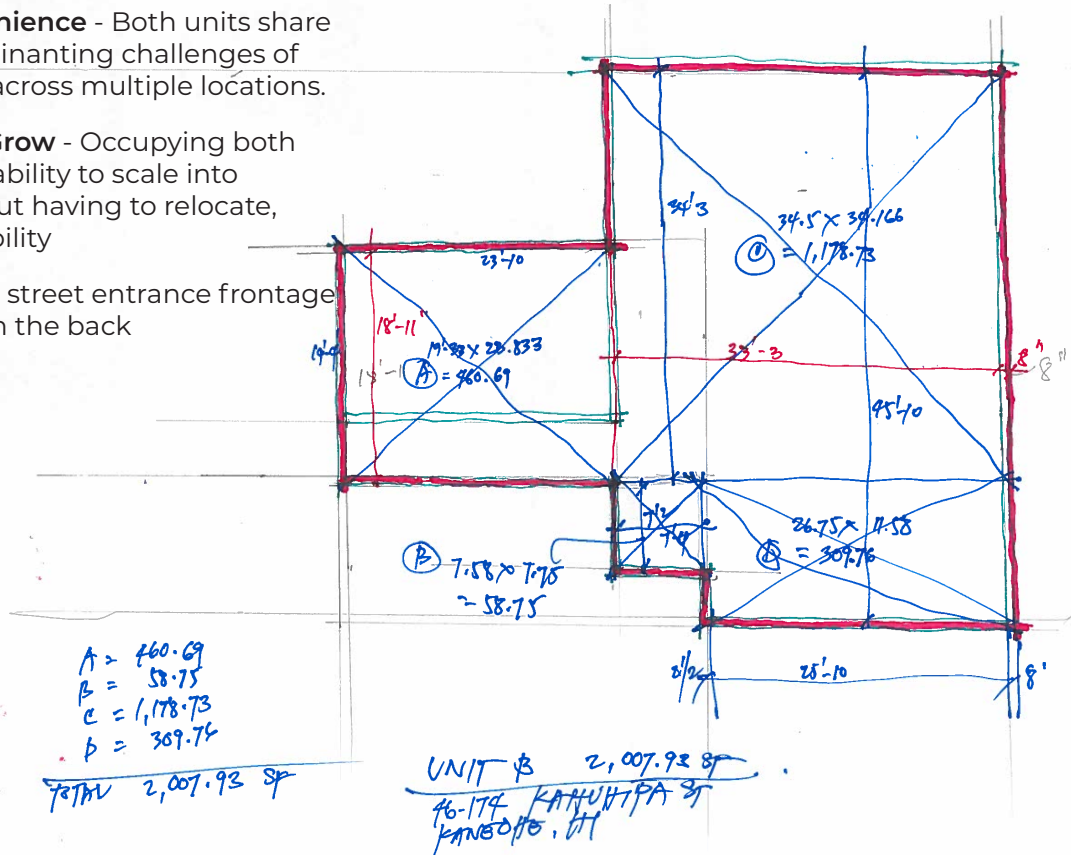 nience - Both units share
inanting challenges of
across multiple locations.
Grow - Occupying both
ability to scale into
ut having to relocate,
bility
street entrance frontage
n the back
34'3
34.5 x 34.166
= 1,178.73
23'-10
18'-11"
19'-4
19.33 x 23.833
A = 460.69
33-3
8"
8"
45'-10
26.75 x 11.58
D = 309.76
7'-2
B 7.58 x 7.75
= 58.75
A = 460.69
B = 58.75
C = 1,178.73
D = 309.76
TOTAL 2,007.93 SF
8 1/2
25'-10
8'
UNIT B 2,007.93 SF
46-174 KAHUHIPA ST
KANEOHE, HI